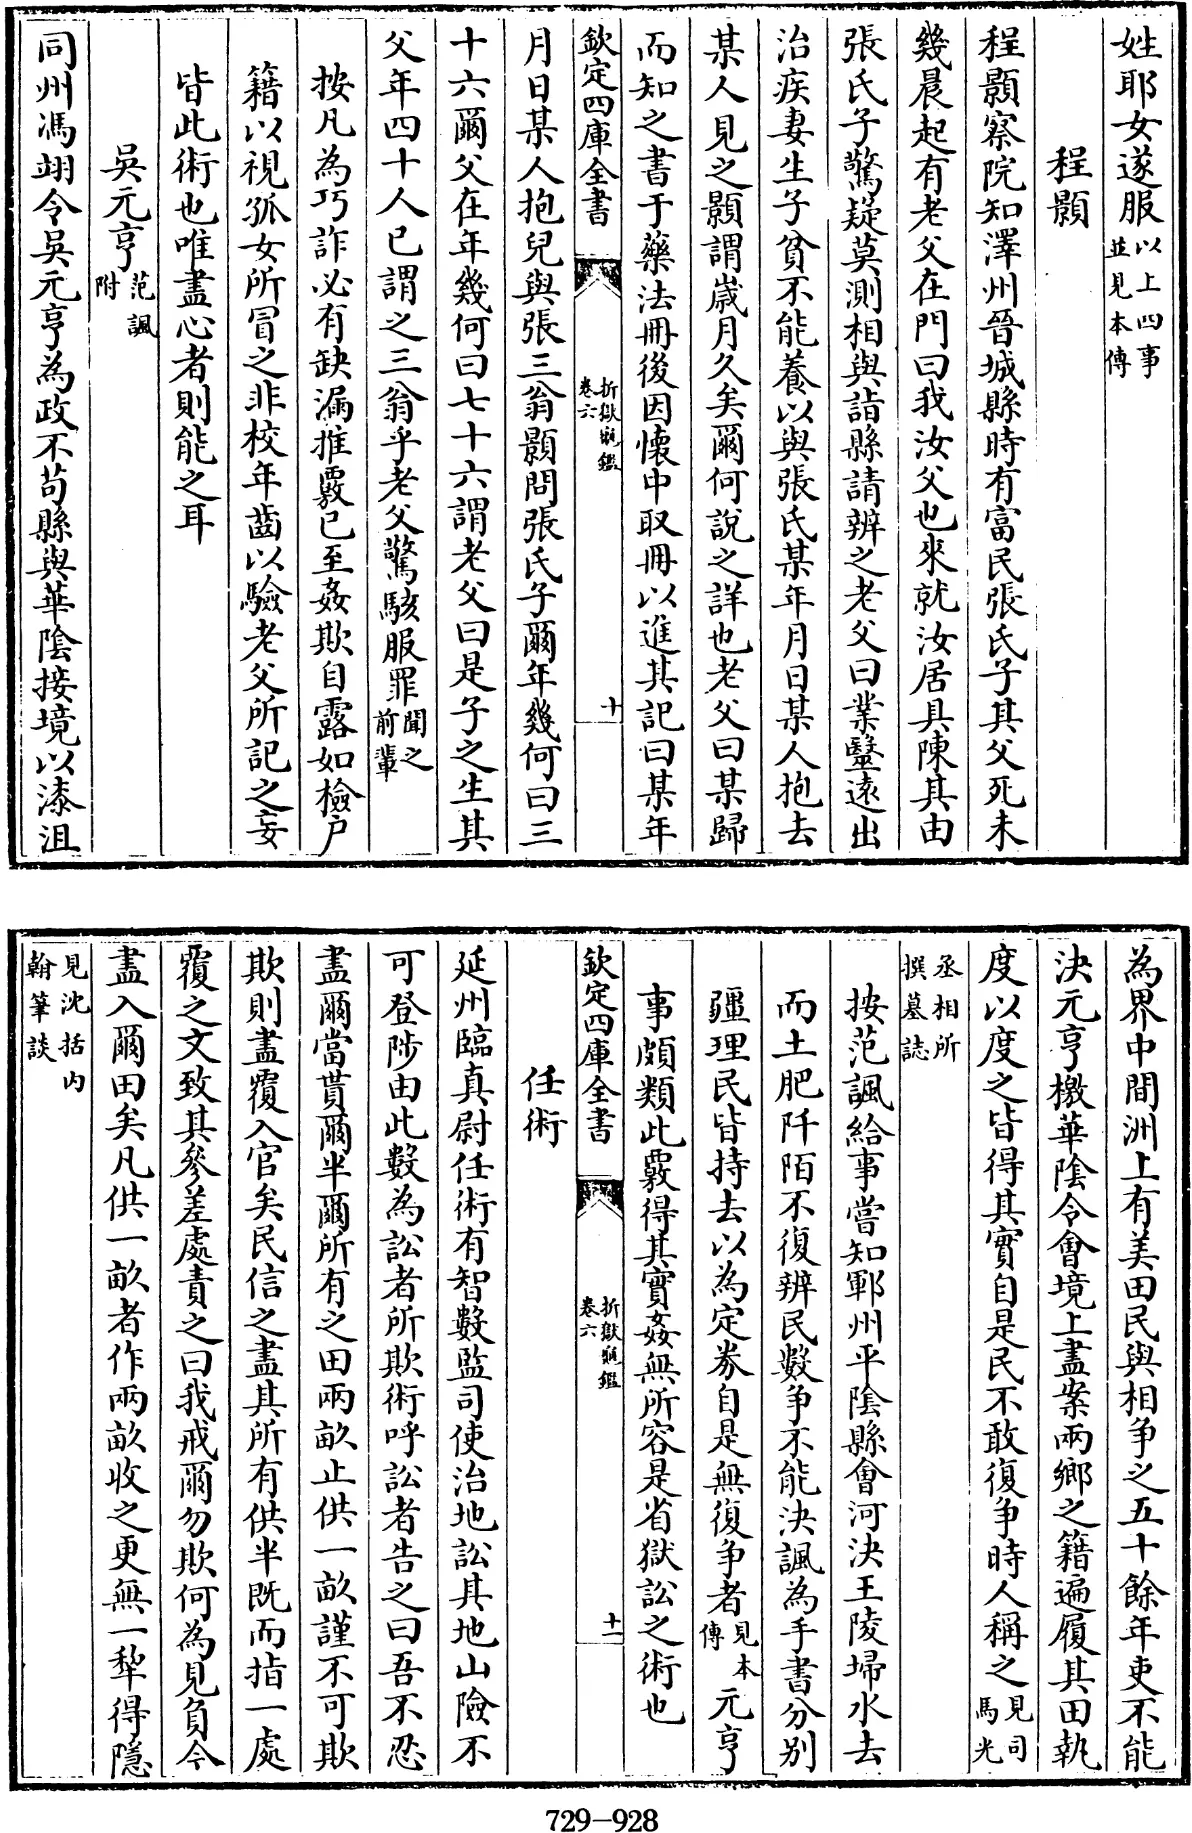 姓耶女遂服以上四事並見本傳
程顥
程顥察院知澤州晉城縣時有富民張氏子其父死未
幾晨起有老父在門曰我汝父也來就汝居具陳其由
張氏子驚疑莫測相與詣縣請辨之老父曰業毉遠出
治疾妻生子貧不能養以與張氏某年月日某人抱去
某人見之顥謂歲月久矣爾何說之詳也老父曰某歸
而知之書于藥法冊後因懷中取冊以進其記曰某年
欽定四庫全書 折獄龜鑑卷六 十
月日某人抱兒與張三翁顥問張氏子爾年幾何曰三
十六爾父在年幾何曰七十六謂老父曰是子之生其
父年四十人已謂之三翁乎老父驚駭服罪聞之前輩
按凡為巧詐必有缺漏推覈已至姦欺自露如檢戶
籍以視孤女所冒之非校年齒以驗老父所記之妄
皆此術也唯盡心者則能之耳
吳元亨范諷附
同州馮翊令吳元亨為政不苟縣與華陰接境以漆沮
為界中間洲上有美田民與相爭之五十餘年吏不能
決元亨檄華陰令會境上盡案兩鄉之籍遍履其田執
度以度之皆得其實自是民不敢復爭時人稱之見司馬光
丞相所撰墓誌
按范諷給事嘗知鄆州平陰縣會河決王陵埽水去
而土肥阡陌不復辨民數爭不能決諷為手書分別
疆理民皆持去以為定券自是無復爭者見本傳元亨
事頗類此覈得其實姦無所容是省獄訟之術也
欽定四庫全書 折獄龜鑑卷六 十一
任術
延州臨真尉任術有智數監司使治地訟其地山險不
可登陟由此數為訟者所欺術呼訟者告之曰吾不忍
盡爾當貰爾半爾所有之田兩畝止供一畝謹不可欺
欺則盡覆入官矣民信之盡其所有供半既而指一處
覆之文致其參差處責之曰我戒爾勿欺何為見負今
盡入爾田矣凡供一畝者作兩畝收之更無一犂得隱
見沈括內翰筆談
729-928